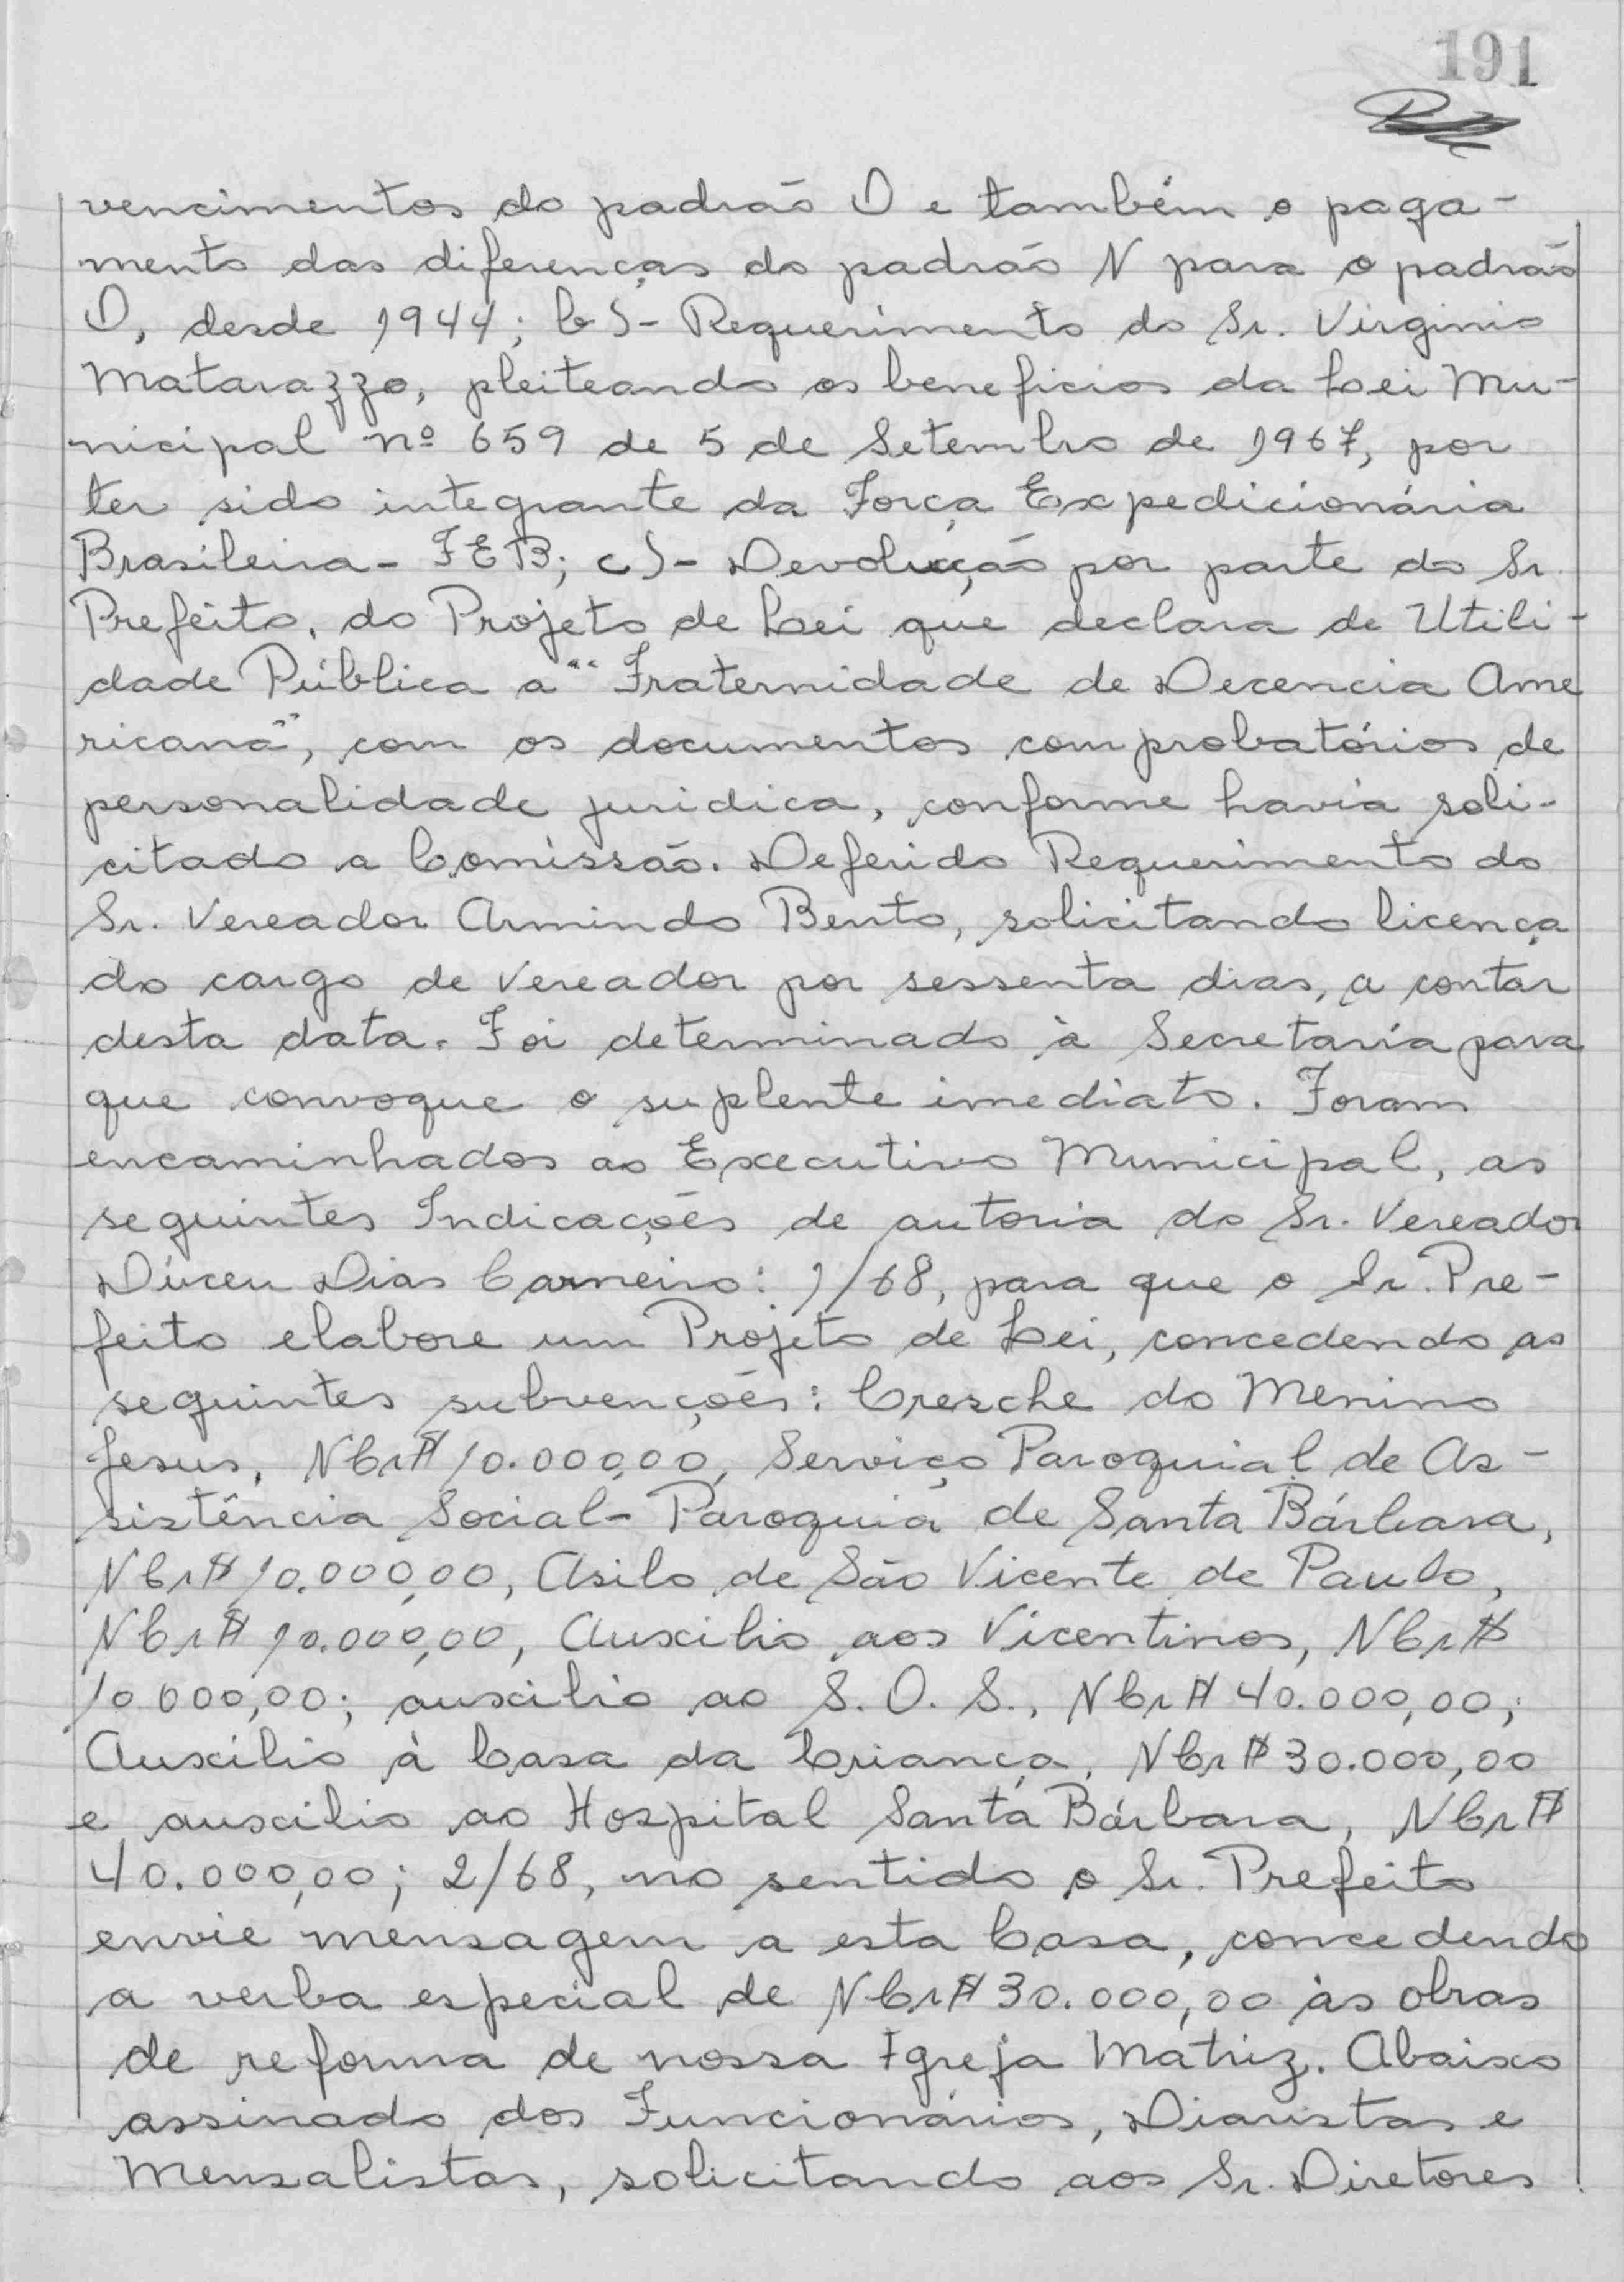 191
vencimentos do padrão O e também o paga-
mento das diferenças do padrão N para o padrão
O, desde 1944; b)- Requerimento do Sr. Virginio
Matarazzo, pleiteando os beneficios da Lei Mu-
nicipal nº 659 de 5 de Setembro de 1967, por
ter sido integrante da Força Expedicionária
Brasileira - FEB; c)- Devolução por parte do Sr.
Prefeito, do Projeto de Lei que declara de Utili-
dade Pública a "Fraternidade de Decencia Ame
ricana", com os documentos comprobatórios de
personalidade juridica, conforme havia soli-
citado a Comissão. Deferido Requerimento do
Sr. Vereador Armindo Bento, solicitando licença
do cargo de Vereador por sessenta dias, a contar
desta data. Foi determinado à Secretaria para
que convoque o suplente imediato. Foram
encaminhados ao Executivo Municipal, as
seguintes Indicações de autoria do Sr. Vereador
Dirceu Dias Carneiro: 1/68, para que o Sr. Pre-
feito elabore um Projeto de Lei, concedendo as
seguintes subvenções: Cresche do Menino
Jesus, NCr$ 10.000,00, Serviço Paroquial de As-
sistência Social - Paroquia de Santa Bárbara,
NCr$ 10.000,00, Asilo de São Vicente de Paulo,
NCr$ 10.000,00, Auxilio aos Vicentinos, NCr$
10.000,00; auxilio ao S. O. S., NCr$ 40.000,00;
Auxílio à Casa da Criança, NCr$ 30.000,00
e auxilio ao Hospital Santa Bárbara, NCr$
40.000,00; 2/68, no sentido o Sr. Prefeito
envie mensagem a esta Casa, concedendo
a verba especial de NCr$ 30.000,00 às obras
de reforma de nossa Igreja Matriz. Abaixo
assinado dos Funcionários, Diaristas e
Mensalistas, solicitando aos Sr. Diretores